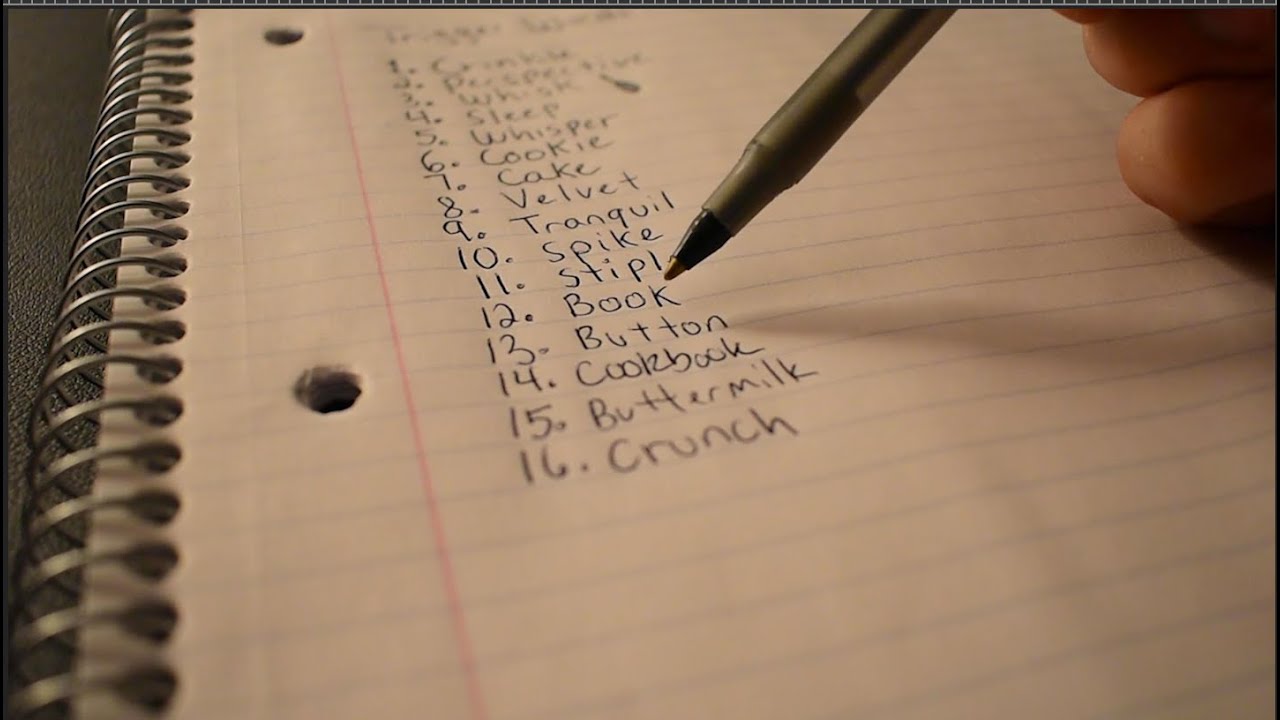 Trigger Words
1. Crinkle
2. Perspective
3. Whisk
4. Sleep
5. Whisper
6. Cookie
7. Cake
8. Velvet
9. Tranquil
10. Spike
11. Stipl
12. Book
13. Button
14. Cookbook
15. Buttermilk
16. Crunch